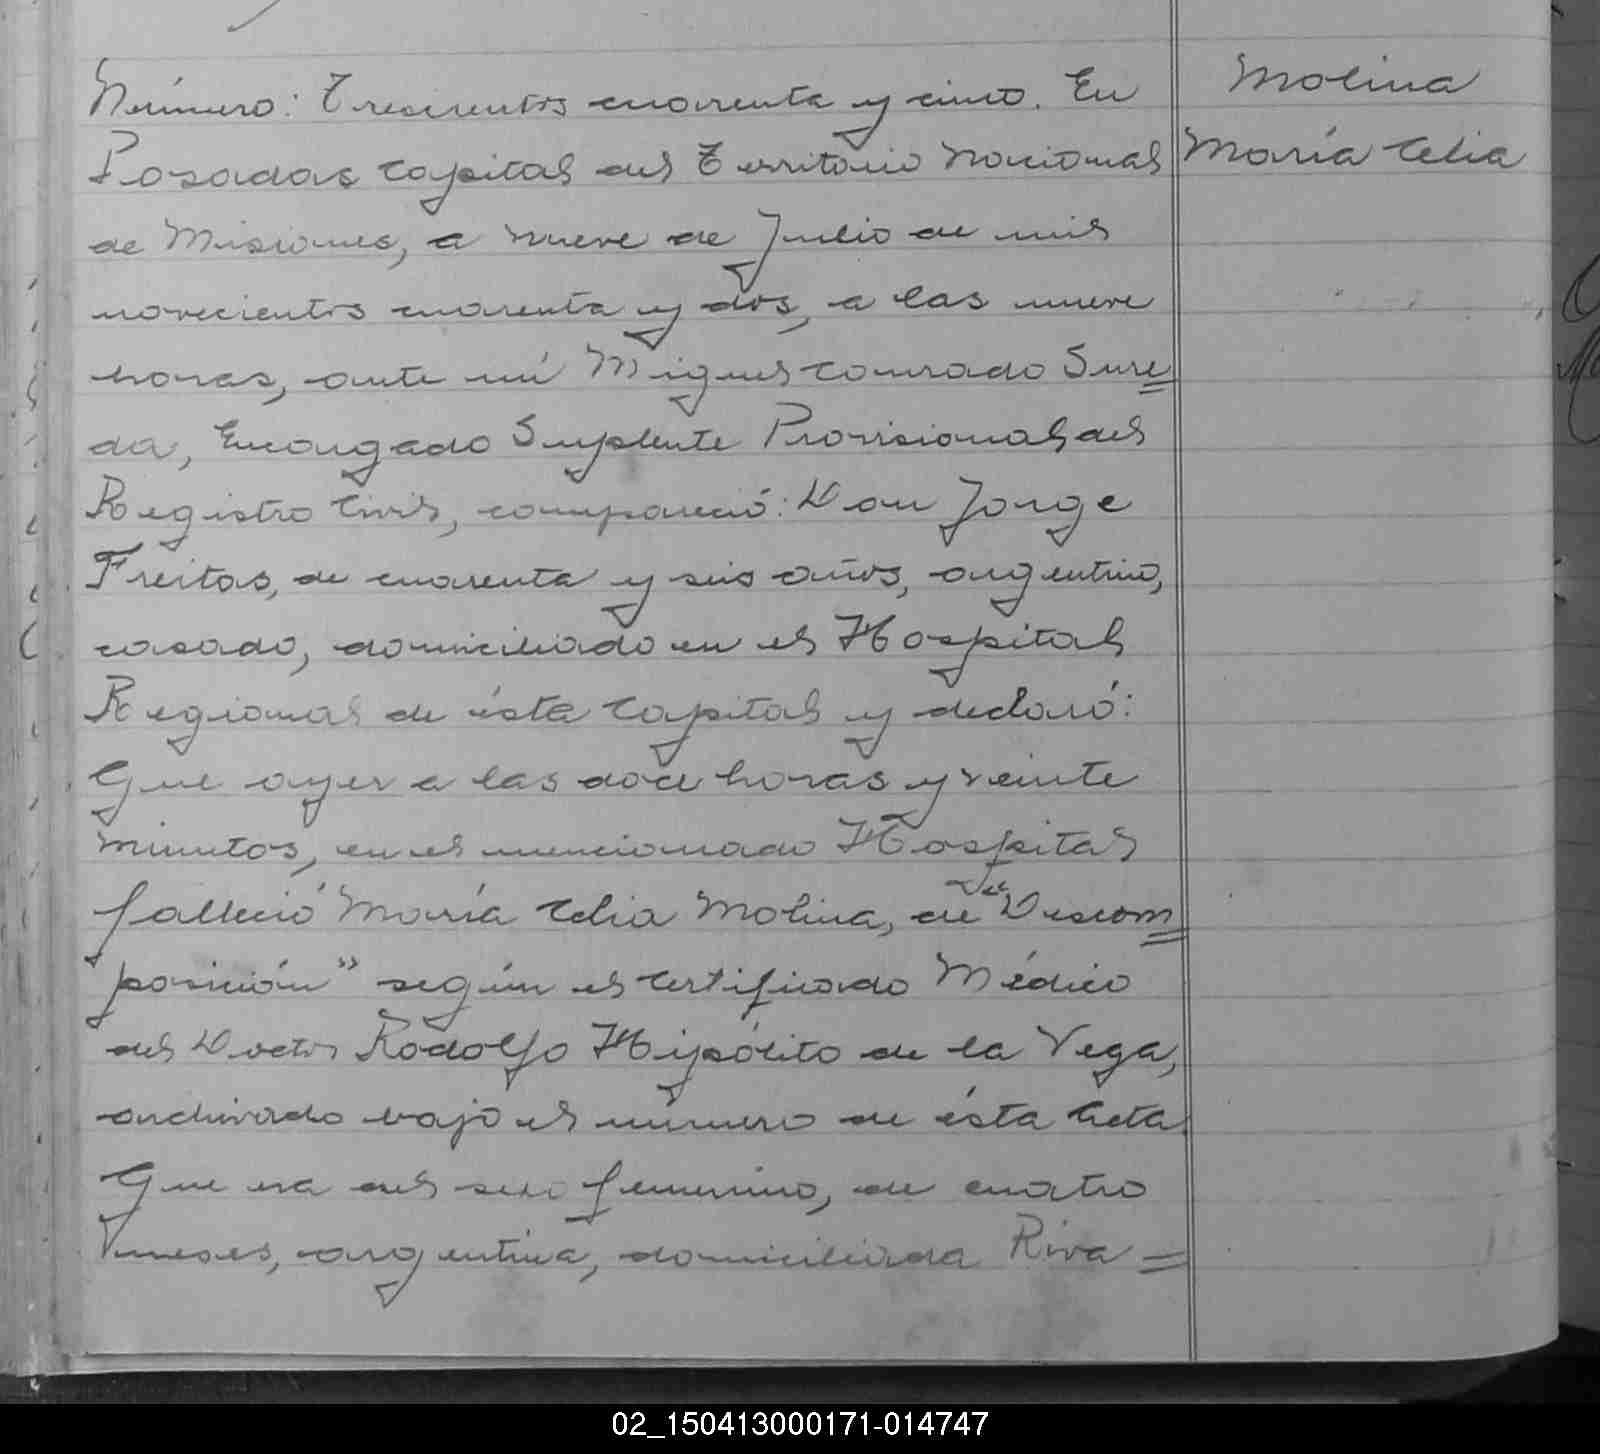 Número: Trescientos cuarenta y cinco. En
Posadas Capital del Territorio Nacional
de Misiones, a nueve de Julio de mil
novecientos cuarenta y dos, a las nueve
horas, ante mí Miguel Conrado Sure=
da, Encargado Suplente Provisional del
Registro Civil, compareció: Don Jorge
Freitas, de cuarenta y seis años, argentino,
casado, domiciliado en el Hospital
Regional de ésta Capital y declaró:
Que ayer a las doce horas y veinte
minutos, en el mencionado Hospital
falleció María Celia Molina, de "Descom=
posición" según el Certificado Médico
del Doctor Rodolfo Hipólito de la Vega,
archivado bajo el número de ésta Acta.
Que era del sexo femenino, de cuatro
meses, argentina, domiciliada Riva=
Molina
María Celia
02_150413000171-014747